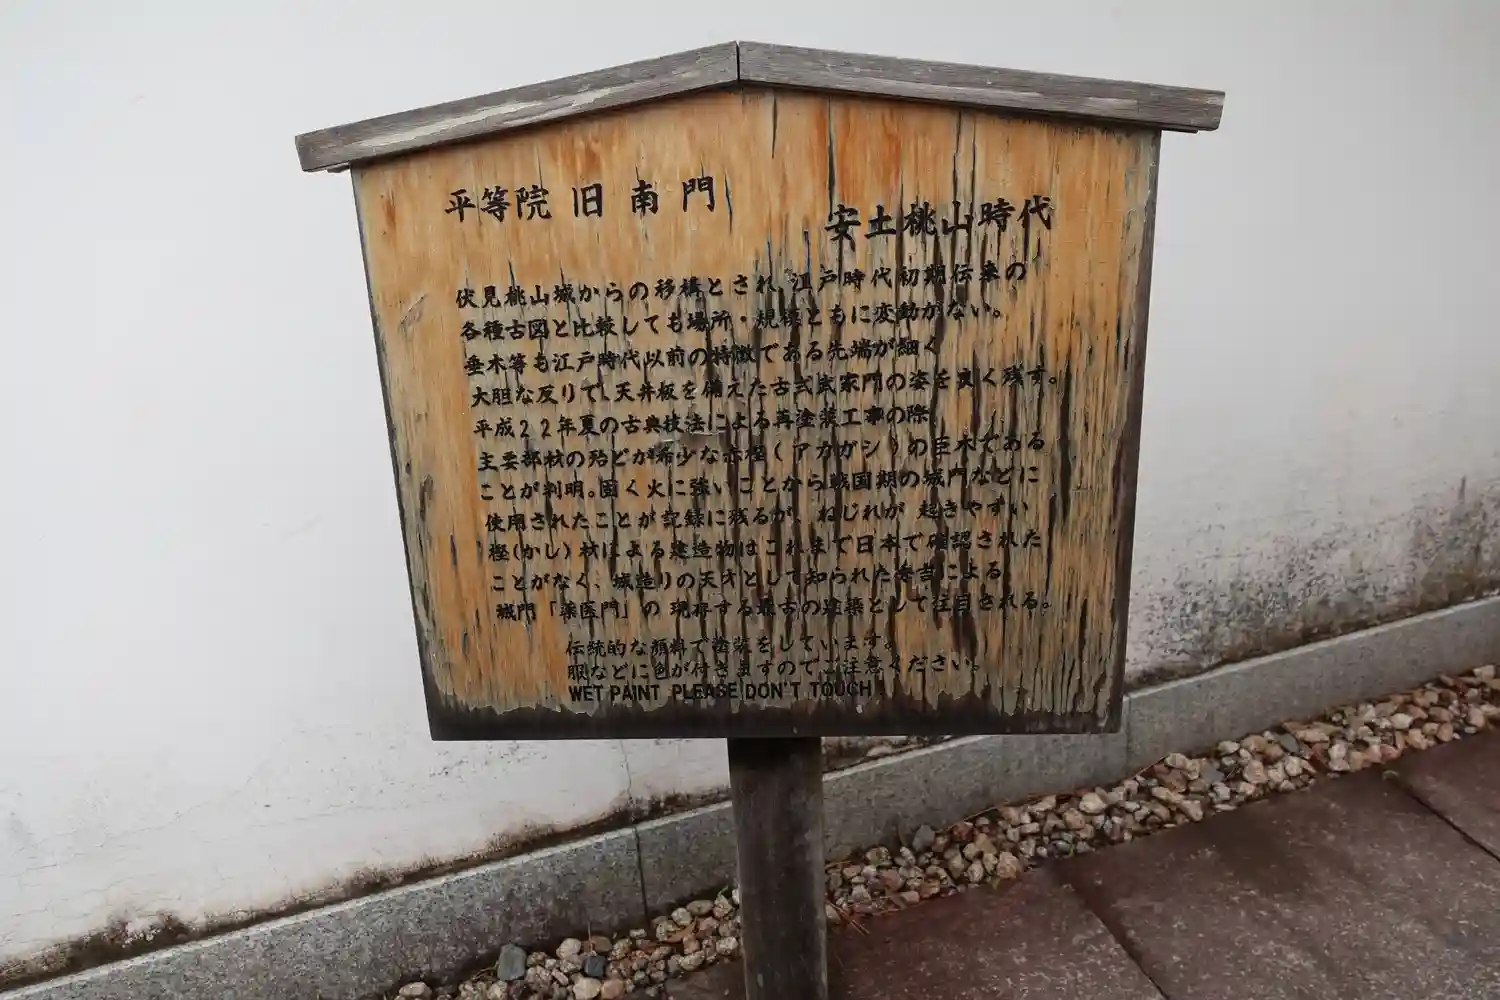 平等院 旧 南 門
安土桃山時代
伏見桃山城からの移構とされ 江戸時代初期伝来の
各種古図と比較しても場所・規模ともに変動がない。
垂木等も江戸時代以前の特徴である先端が細く
大胆な反りで、天井板を備えた古式武家門の姿を良く残す。
平成22年夏の古典技法による再塗装工事の際
主要部材の殆どが希少な赤樫(アカガシ)の巨木である
ことが判明。固く火に強いことから戦国期の城門などに
使用されたことが記録に残るが、ねじれが 起きやすい
樫(かし)材による建造物はこれまで日本で確認された
ことがなく、城造りの天才として知られた秀吉による
城門「薬医門」の現存する最古の建築として注目される。
伝統的な顔料で塗装をしています。
服などに色が付きますのでご注意ください。
WET PAINT PLEASE DON'T TOUCH